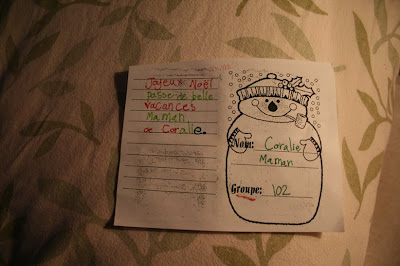 Joyeux Noël
passe de belle
vacances
Maman
de Coralie
Nom: Coralie
Maman
Groupe: 102